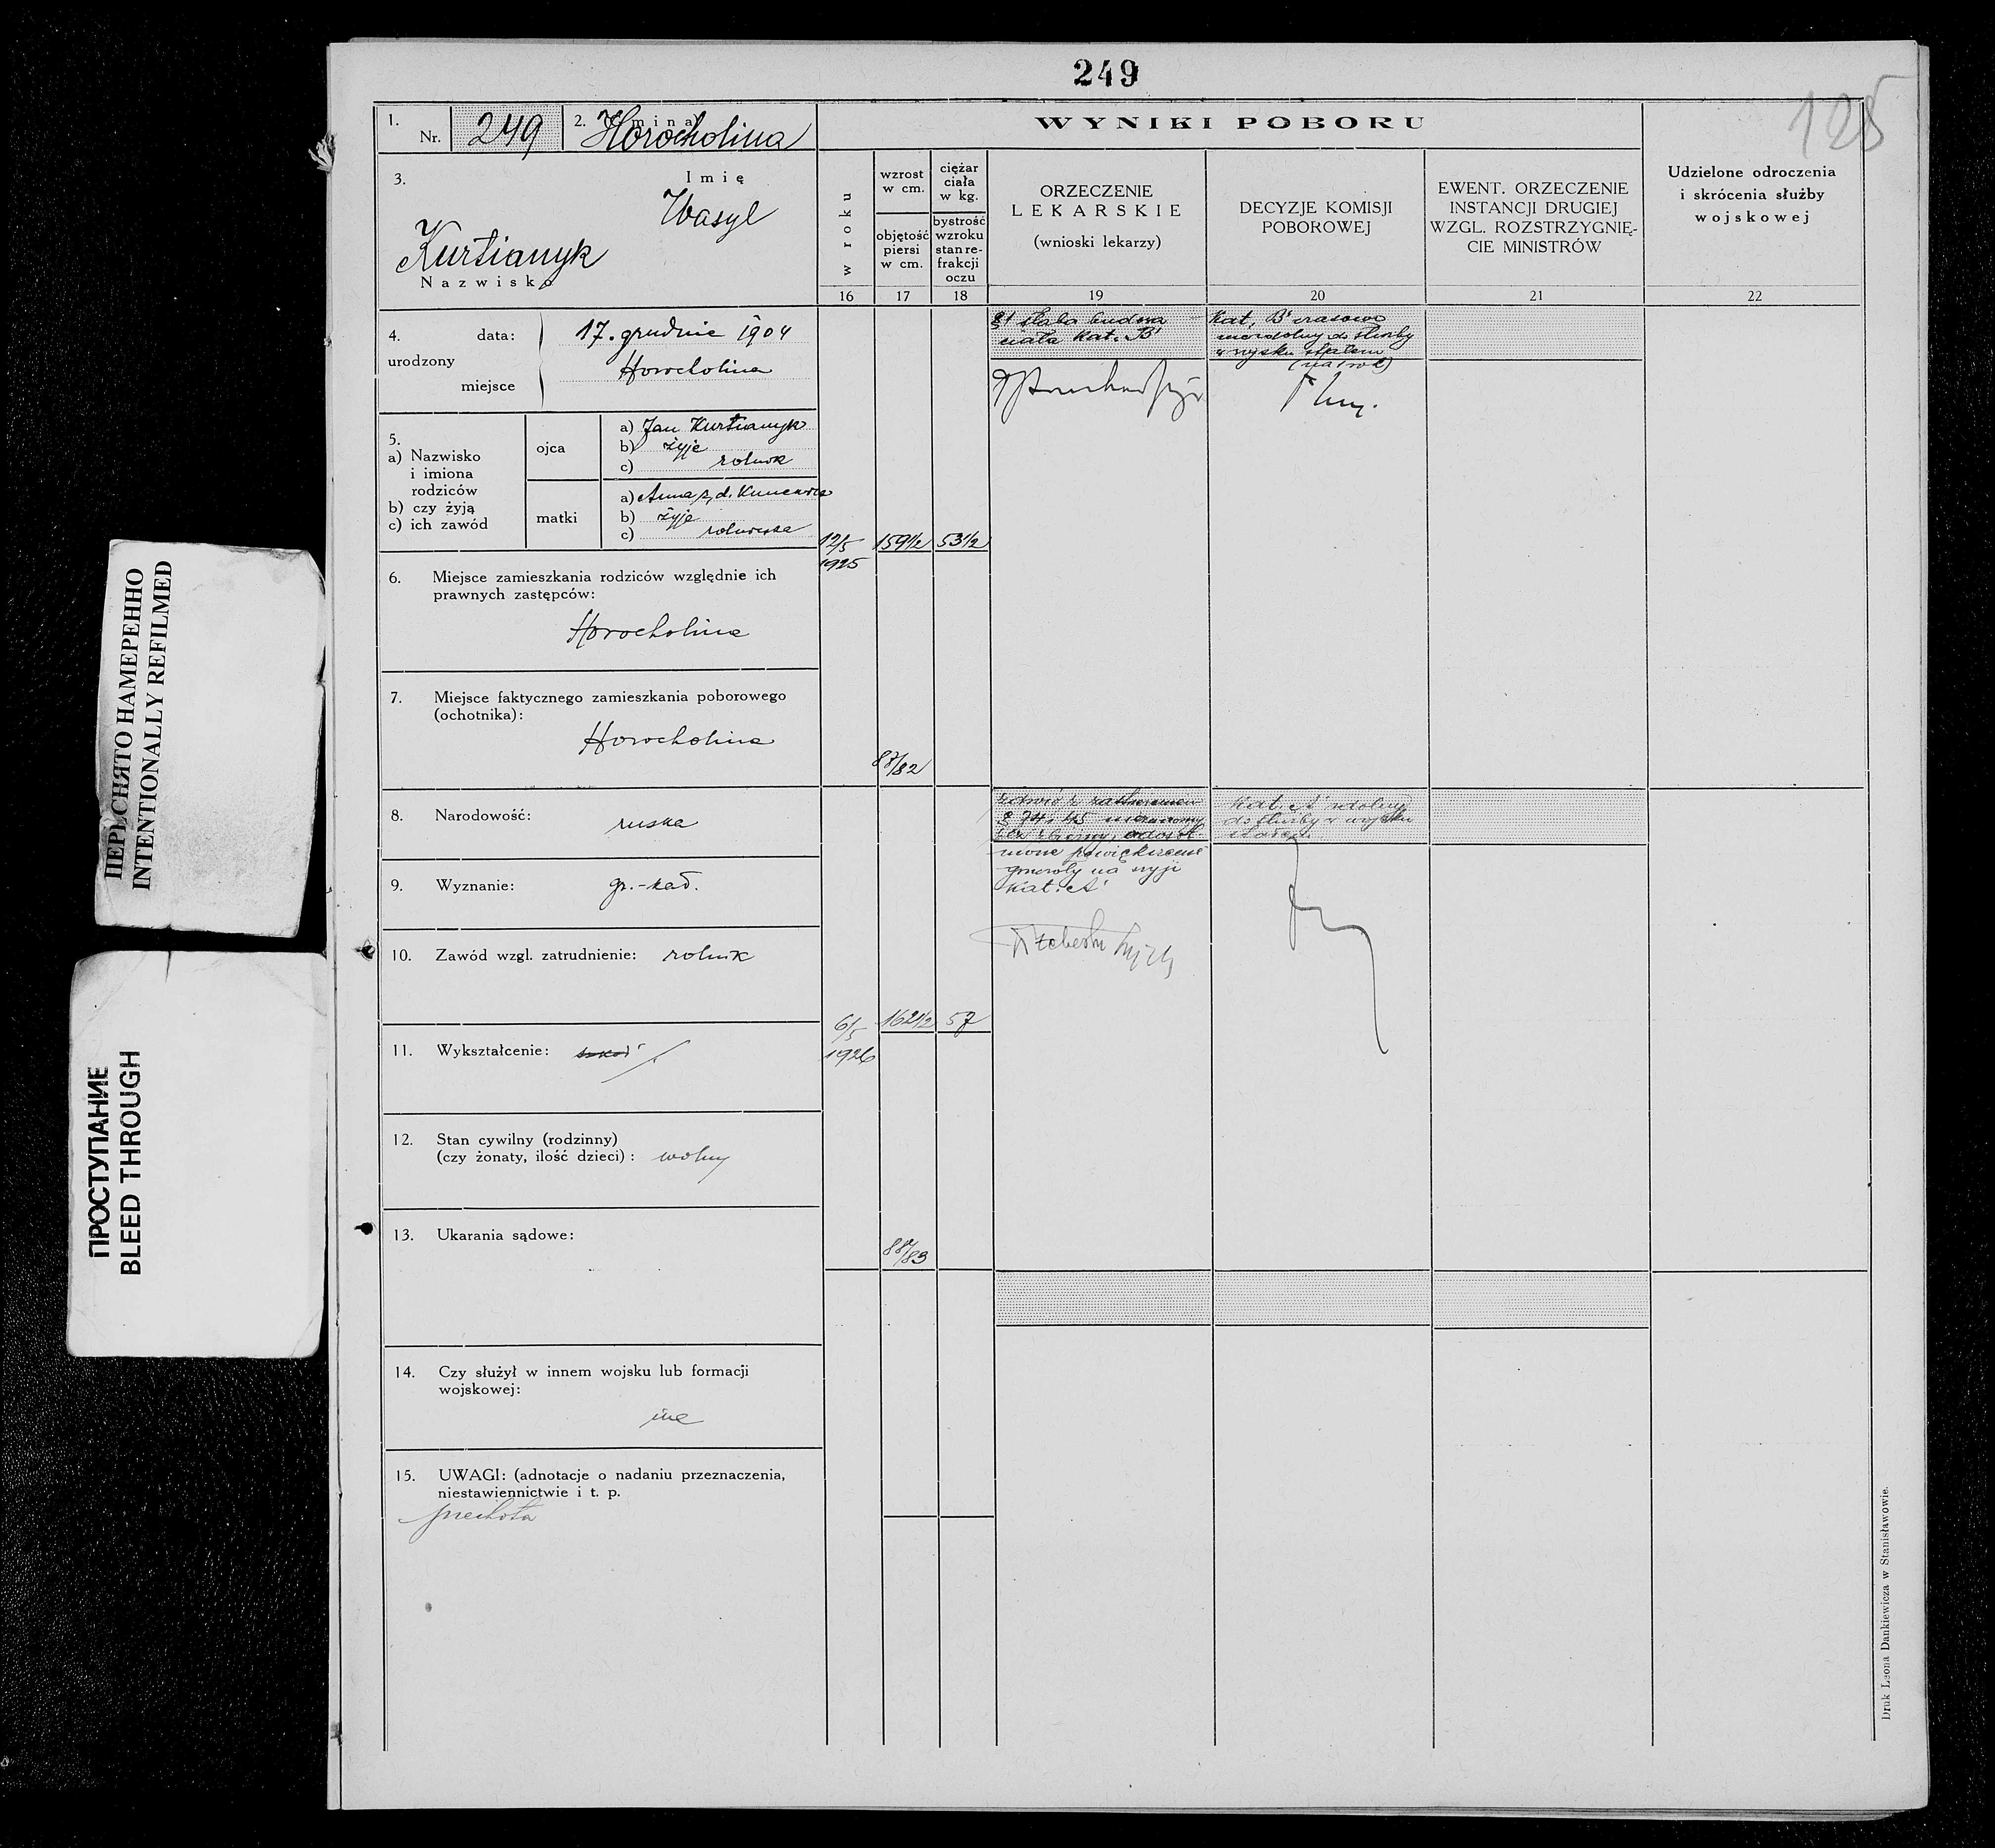 249
125
1. Nr. 249 2. Gmina) Horocholina
3. Imię
Wasyl
Kurtianyk
Nazwisko
WYNIKI POBORU
w roku
wzrost w cm.
objętość piersi w cm.
ciężar ciała w kg.
bystrość wzroku stan re-frakcji oczu
ORZECZENIE
LEKARSKIE
(wnioski lekarzy)
DECYZJE KOMISJI
POBOROWEJ
EWENT. ORZECZENIE
INSTANCJI DRUGIEJ
WZGL. ROZSTRZYGNIĘ-
CIE MINISTRÓW
Udzielone odroczenia
i skrócenia służby
wojskowej
16 17 18 19 20 21 22
4. data: 17. grudnia 1904
urodzony
miejsce Horocholina
5.
a) Nazwisko
i imiona
rodziców
b) czy żyją
c) ich zawód
ojca
a) Jan Kurtianyk
b) żyje
c) rolnik
matki
a) Anna z d.
b) żyje
c) rolniczka
12/5
1925
159 1/2
53 1/2
87/82
§1 słaba budowa
ciała Kat. B
Kat. B czasowo
niezdolny do służby
w wojsku stałem
(na 1 rok)
6. Miejsce zamieszkania rodziców względnie ich
prawnych zastępców:
Horocholina
7. Miejsce faktycznego zamieszkania poborowego
(ochotnika):
Horocholina
8. Narodowość: ruska
9. Wyznanie: gr.-kat.
10. Zawód wzgl. zatrudnienie: rolnik
11. Wykształcenie:
12. Stan cywilny (rodzinny)
(czy żonaty, ilość dzieci): wolny
13. Ukarania sądowe:
14. Czy służył w innem wojsku lub formacji
wojskowej:
nie
15. UWAGI: (adnotacje o nadaniu przeznaczenia,
niestawiennictwie i t. p.
piechota
6/5
1926
162 1/2
57
88/83
powiększenie
gruczoły na szyji
Kat. A
Kat. A zdolny
do służby w wojsku
stałem
Druk Leona Dankiewicza w Stanisławowie.
ПЕРЕСНЯТО НАМЕРЕННО
INTENTIONALLY REFILMED
ПРОСТУПАНИЕ
BLEED THROUGH